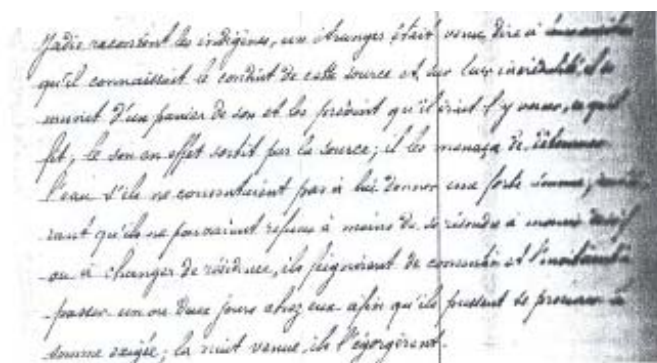 Jadis racontent les indigènes, un étranger était venu dire à
qu'il connaissait le conduit de cette source et sur leur incrédulité il se
munit d'un panier de son et les prévint qu'il irait l'y verser, ce qu'il
fit, le son en effet sortit par la source; il les menaça de détourner
l'eau s'ils ne consentaient pas à lui donner une forte somme,
rant qu'ils ne pouvaient refuser à moins de se résoudre à mourir de soif
ou à changer de résidence, ils feignirent de consentir et l'invitèrent à
passer un ou deux jours chez eux afin qu'ils pussent se procurer la
somme exigée; la nuit venue, ils l'égorgèrent.